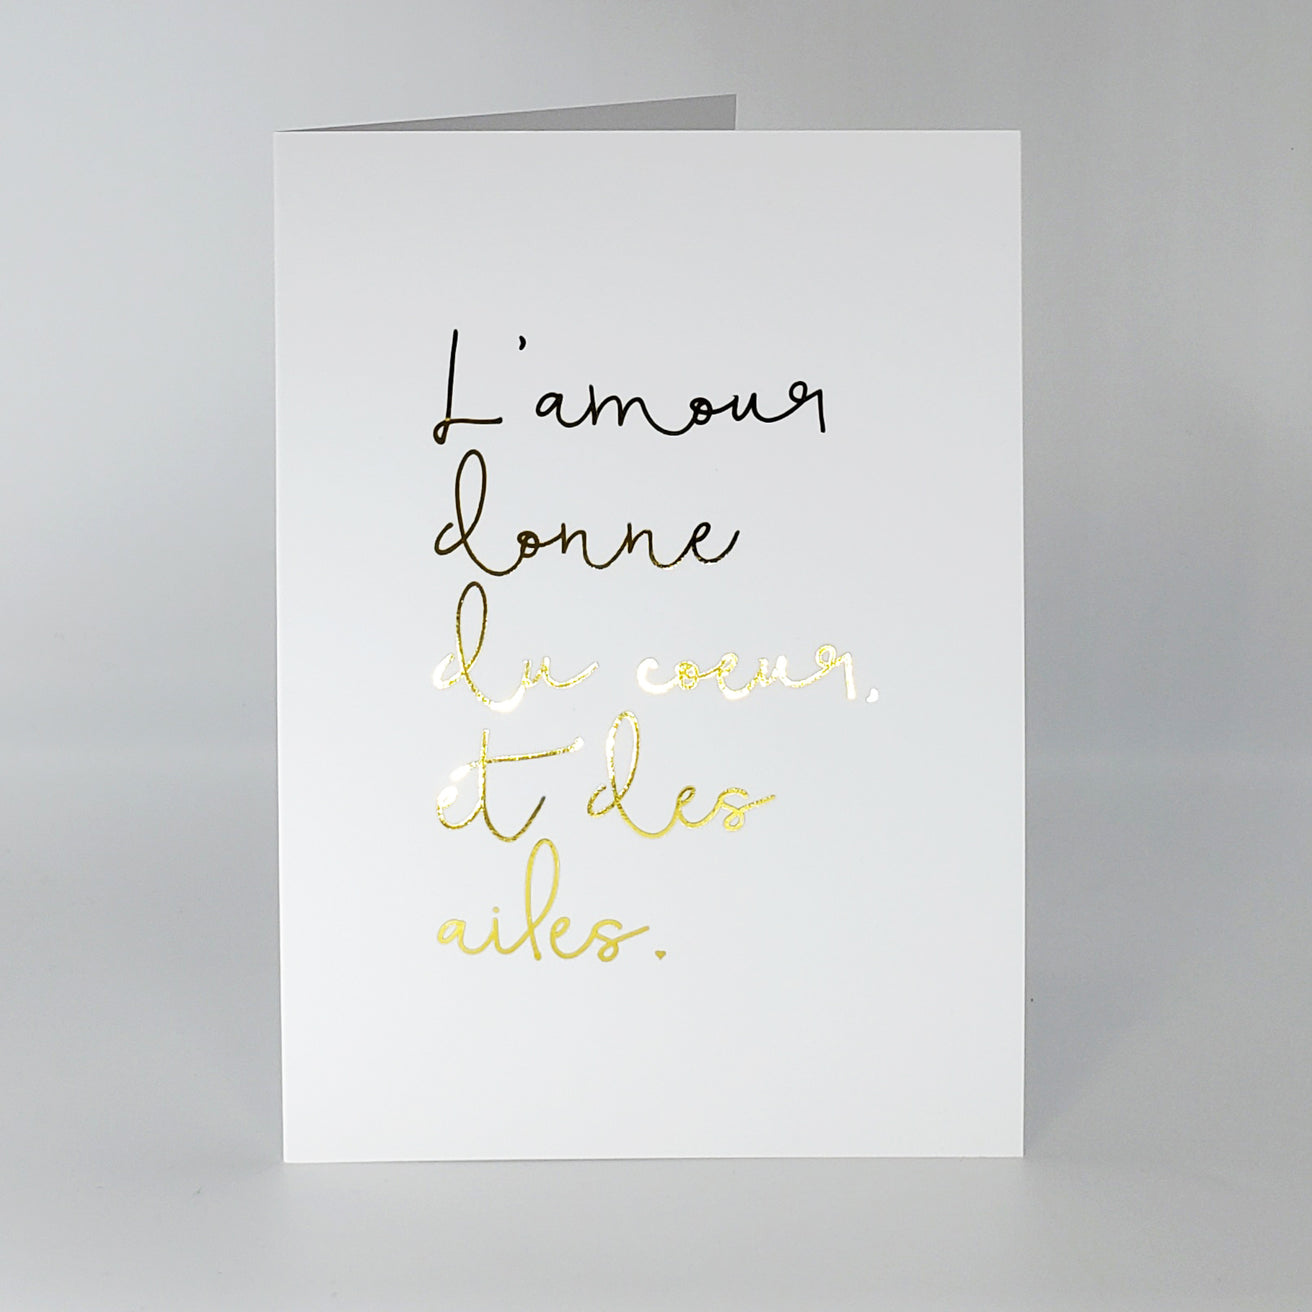 L'amour
donne
du coeur,
et des
ailes.